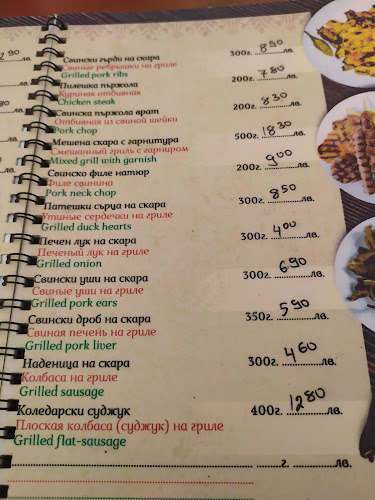 Свински гърди на скара 300г. 890 лв.
Свиные ребрышки на гриле
Grilled pork ribs 200г. 780 лв.
Пилешка пържола
Куриная отбивная
Chicken steak 200г. 830 лв.
Свинска пържола врат
Отбивная из свиной шейки
Pork chop 500г. 1830 лв.
Мешена скара с гарнитура
Смешанный гриль с гарниром
Mixed grill with garnish 200г. 900 лв.
Свинско филе натюр
Филе свинина
Pork neck chop 300г. 850 лв.
Патешки сърца на скара
Утиные сердечки на гриле
Grilled duck hearts 300г. 400 лв.
Печен лук на скара
Печеный лук на гриле
Grilled onion 300г. 690 лв.
Свински уши на скара
Свиные уши на гриле
Grilled pork ears 350г. 590 лв.
Свински дроб на скара
Свиная печень на гриле
Grilled pork liver 300г. 460 лв.
Наденица на скара
Колбаса на гриле
Grilled sausage
Коледарски суджук 400г. 1280 лв.
Плоская колбаса (суджук) на гриле
Grilled flat-sausage
г. лв.